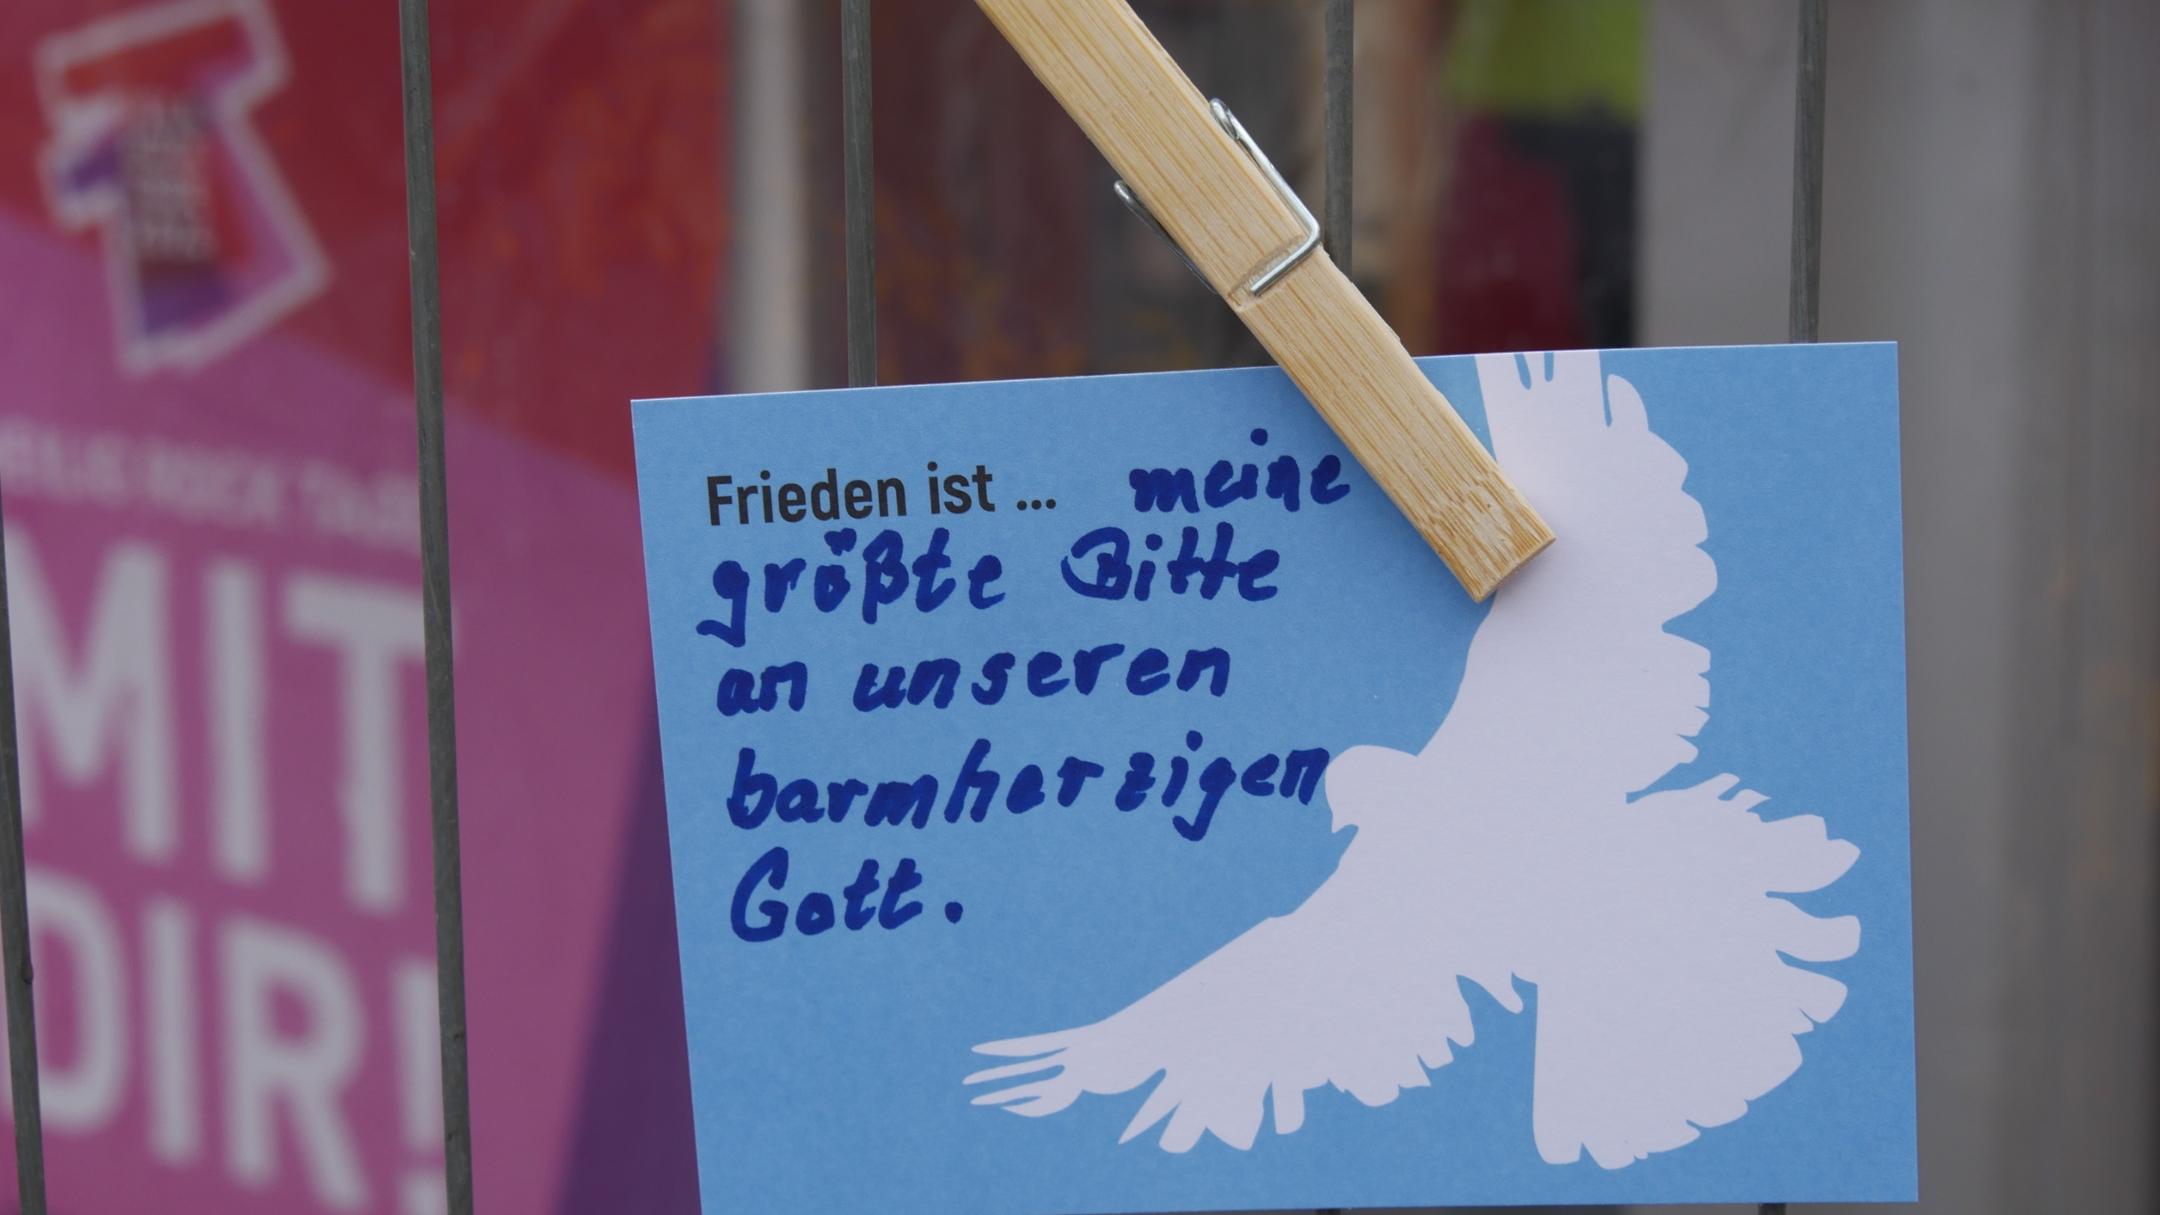 MIT
DIR!
Frieden ist ... meine
größte Bitte
an unseren
barmherzigen
Gott.